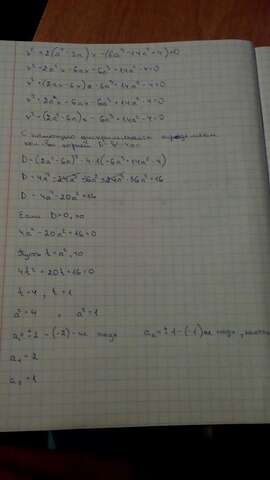 x² + 2(a² - 3a)x - (6a³ - 14a² + 4) = 0
x² + 2a²x - 6ax - 6a³ + 14a² - 4 = 0
x² + (2a² - 6a)x - 6a³ + 14a² - 4 = 0
x² + 2a²x - 6ax - 6a³ + 14a² - 4 = 0
x² + (2a² - 6a)x - 6a³ + 14a² - 4 = 0
С помощью дискриминанта определим
кол-во корней D = b² - 4ac
D = (2a² - 6a)² - 4·1(-6a³ + 14a² - 4)
D = 4a⁴ - 24a³ + 36a² + 24a³ - 56a² + 16
D = 4a⁴ - 20a² + 16
Если D = 0, то
4a⁴ - 20a² + 16 = 0
Пусть t = a², то
4t² + 20t + 16 = 0
t = 4, t = 1
a² = 4, a² = 1
a₁ = ±2 - (-2) - не подх a₂ = ±1 - (-1) не подх
a₁ = 2
a₂ = 1